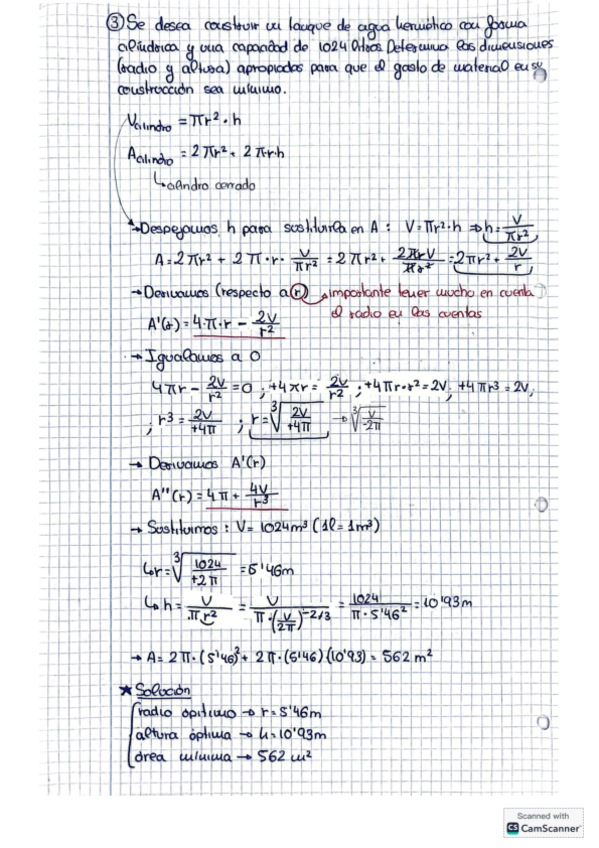 ③ Se desea construir un tanque de agua hermético con forma
cilíndrica y una capacidad de 1024 litros. Determina las dimensiones
(radio y altura) apropiadas para que el gasto de material en su
construcción sea mínimo.
Vcilindro = πr² · h
Acilindro = 2πr² + 2π·r·h
↳ cilindro cerrado
→ Despejamos h para sustituirla en A : V = πr²·h ⇒ h = V/πr²
A = 2πr² + 2π · r · V/πr² = 2πr² + 2πrV/πr² = 2πr² + 2V/r
→ Derivamos (respecto a r) → importante tener mucho en cuenta
el radio en las cuentas
A'(r) = 4·π·r − 2V/r²
→ Igualamos a 0
4πr − 2V/r² = 0 ; +4πr = 2V/r² ; +4πr·r² = 2V ; +4πr³ = 2V ;
; r³ = 2V/+4π ; r = ∛(2V/+4π) → ∛(V/-2π)
→ Derivamos A'(r)
A''(r) = 4π + 4V/r³
→ Sustituimos : V = 1024m³ (1l = 1m³)
↳ r = ∛(1024/+2π) = 5'46m
↳ h = V/πr² = V/π·(V/2π)^-2/3 = 1024/π·5'46² = 10'93m
→ A = 2π·(5'46)² + 2π·(5'46)(10'93) = 562 m²
★ Solución
radio óptimo → r = 5'46m
altura óptima → h = 10'93m
área mínima → 562 m²
Scanned with
CS CamScanner